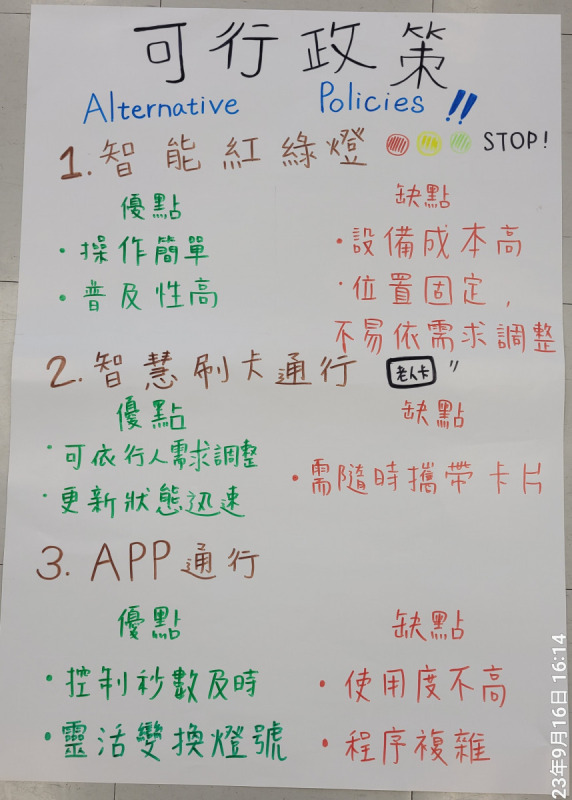 可行政策
Alternative Policies!!
1.智能紅綠燈 STOP!
優點
缺點
・操作簡單
・普及性高
・設備成本高
・位置固定,
不易依需求調整
2.智慧刷卡通行 老人卡"
優點
缺點
・可依行人需求調整
・更新狀態迅速
・需隨時攜帶卡片
3. APP通行
優點
缺點
・控制秒數及時
・靈活變換燈號
・使用度不高
・程序複雜
23年9月16日 16:14